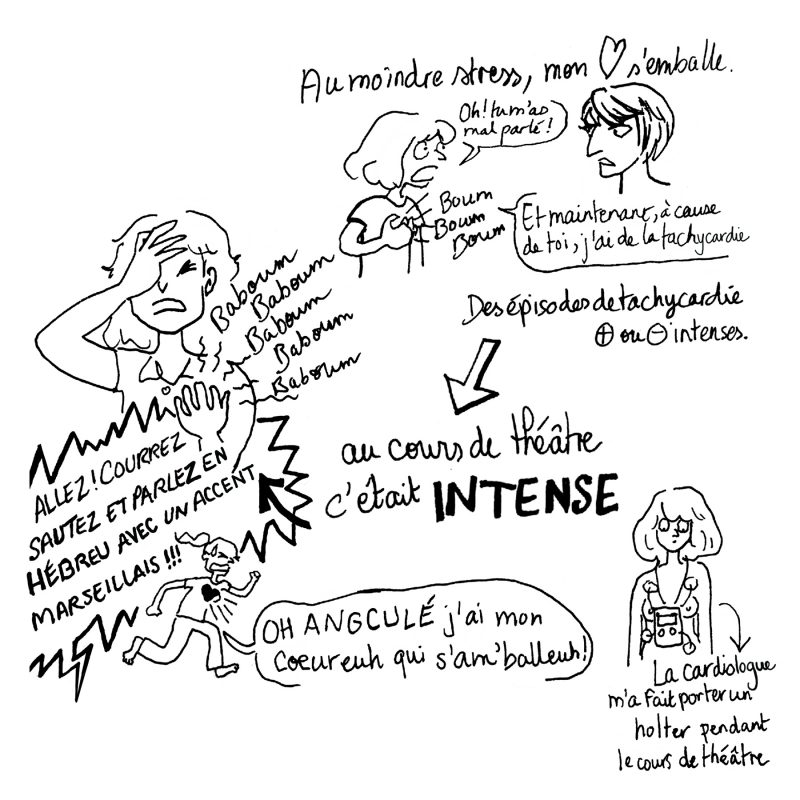 Au moindre stress, mon ♡ s'emballe.
Oh! tu m'as
mal parlé!
Boum
Boum
Boum
Et maintenant, à cause
de toi, j'ai de la tachycardie
Baboum
Baboum
Baboum
Baboum
Baboum
Des épisodes de tachycardie
⊕ ou ⊖ intenses.
au cours de théâtre
c'était INTENSE
ALLEZ! COURREZ
SAUTEZ ET PARLEZ EN
HÉBREU AVEC UN ACCENT
MARSEILLAIS!!!
OH ANGCULÉ j'ai mon
coeureuh qui s'am'balleuh!
La cardiologue
m'a fait porter un
holter pendant
le cours de théâtre